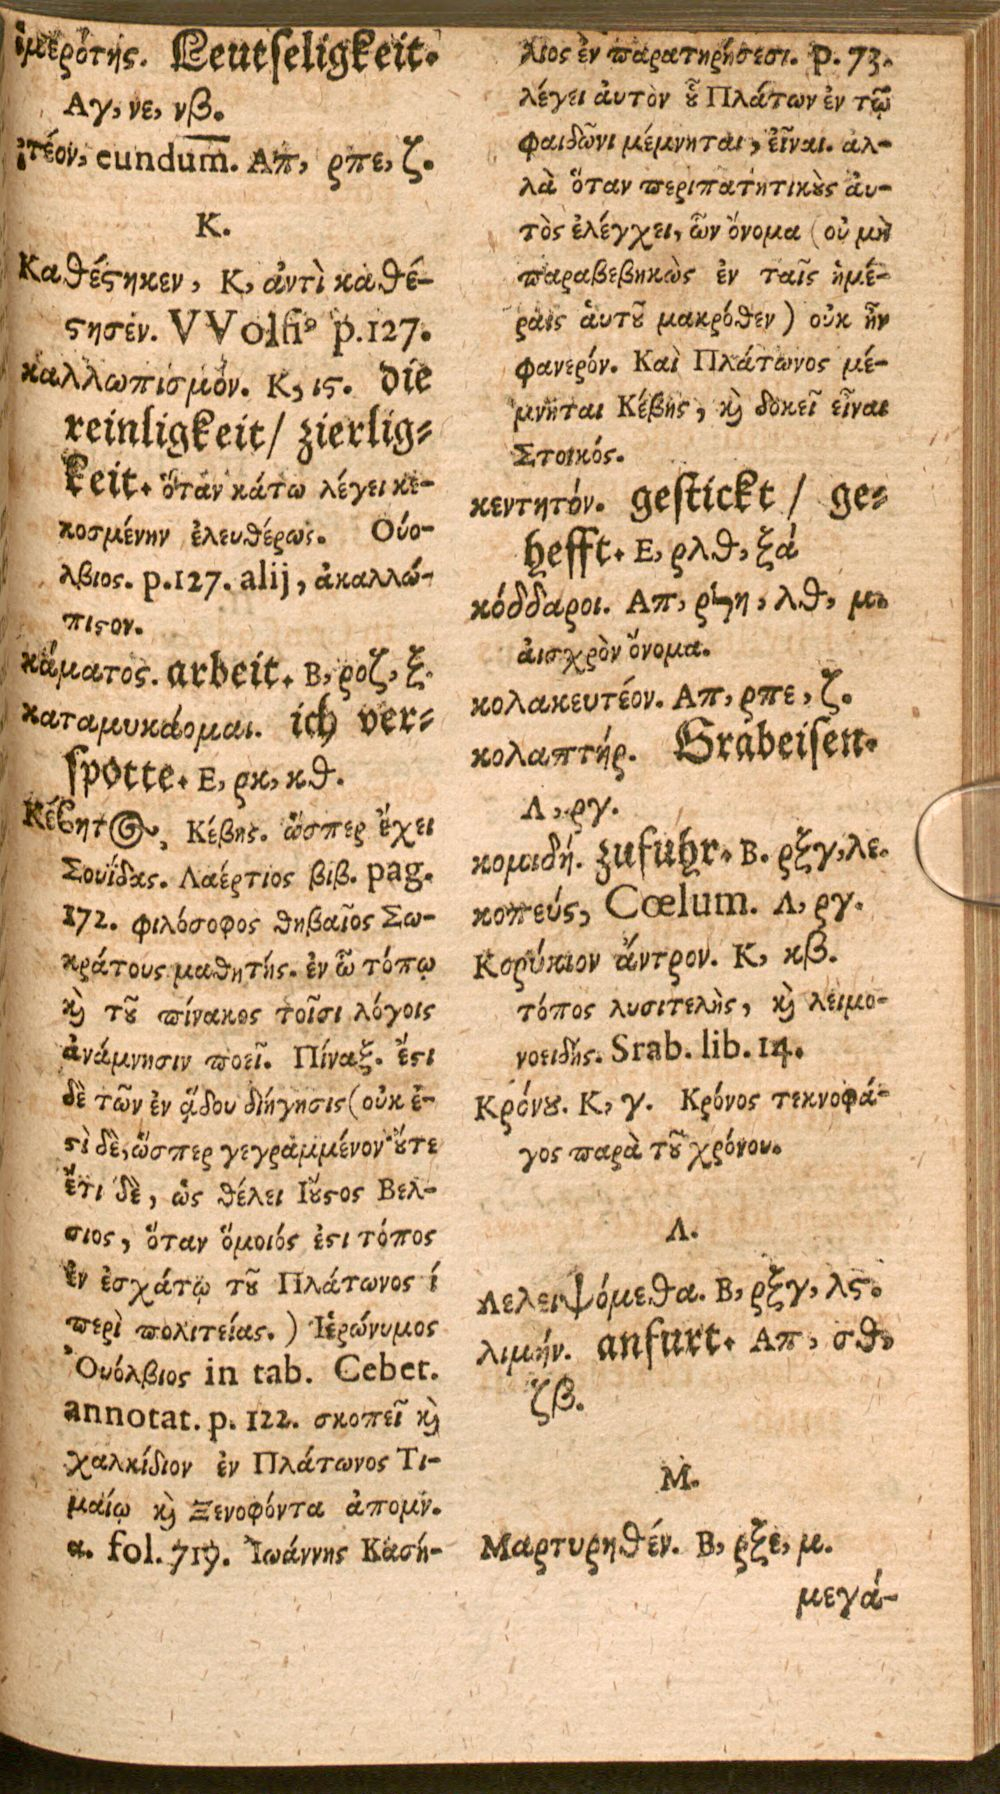 ἱμερότης. Leutseligkeit.
Αγ, νε, νβ.
ἰτέον, eundum. Απ, ρπε, ζ.
Κ.
Καθέςηκεν, Κ, ἀντὶ καθέ-
ςησεν. VVolfiꝰ p.127.
καλλωπισμόν. Κ, ις. die
reinligkeit/ zierlig-
keit. ὅταν κάτω λέγει κε-
κοσμένην ἐλευθέρως. Οὐο-
λβιος. p.127. alij, ἀκαλλώ-
πιςον.
κάματος. arbeit. Β, ροζ, ξ.
καταμυκάομαι. ich ver-
spotte. Ε, ρκ, κθ.
Κέβητος, Κέβης. ὥσπερ ἔχει
Σουίδας. Λαέρτιος βιβ. pag.
172. φιλόσοφος θηβαῖος Σω-
κράτους μαθητής. ἐν ᾧ τόπῳ
κὶ τȣ͂ πίνακος τοῖσι λόγοις
ἀνάμνησιν ποεῖ. Πίναξ. ἔςι
δὲ τῶν ἐν ᾅδου διήγησις (οὐκ ἐ-
ςὶ δὲ, ὥσπερ γεγραμμένον ȣ̓́τε
ἔτι δὲ, ὡς θέλει Ιȣ͂ςος Βελ-
σιος, ὅταν ὅμοιός ἐςι τόπος
ἐν ἐσχάτῳ τȣ͂ Πλάτωνος ί
περὶ πολιτείας.) Ἱερώνυμος
Ὀυόλβιος in tab. Cebet.
annotat. p. 122. σκοπεῖ κὶ
χαλκίδιον ἐν Πλάτωνος Τι-
μαίῳ κὶ Ξενοφόντα ἀπομν.
α. fol. 719. Ἰωάννης Κασή-
λιος ἐν παρατηρήσεσι. p. 73.
λέγει ἀυτὸν ȣ̔͂ Πλάτων ἐν τῷ
φαιδῶνι μέμνηται, εἶναι. ἀλ-
λὰ ὅταν περιπατητικȣ̀ς ἀυ-
τὸς ἐλέγχει, ὧν ὄνομα (οὐ μὴ
παραβεβηκὼς ἐν ταῖς ἡμέ-
ραις ἁυτȣ͂ μακρόθεν) οὐκ ἦν
φανερόν. Καὶ Πλάτωνος μέ-
μνηται Κέβης, κὶ δοκεῖ εἶναι
Στοικός.
κεντητόν. gestickt / ge-
hefft. Ε, ρλθ, ξά
κόδδαροι. Απ, ρϟη, λθ, μ.
ἀισχρὸν ὄνομα.
κολακευτέον. Απ, ρπε, ζ.
κολαπτήρ. Grabeisen.
Λ, ργ.
κομιδή. zufuhr. Β. ρξγ, λε.
κοπεύς, Cœlum. Λ, ργ.
Κορύκιον ἄντρον. Κ, κβ.
τόπος λυσιτελὴς, κὶ λειμο-
νοειδής. Srab. lib. 14.
Κρόνȣ. Κ, γ. Κρόνος τεκνοφά-
γος παρὰ τȣ͂ χρόνου.
Λ.
Λελειψόμεθα. Β, ρξγ, λς.
λιμήν. anfurt. Απ, σθ,
ζβ.
Μ.
Μαρτυρηθέν. Β, ρξε, μ.
μεγά-